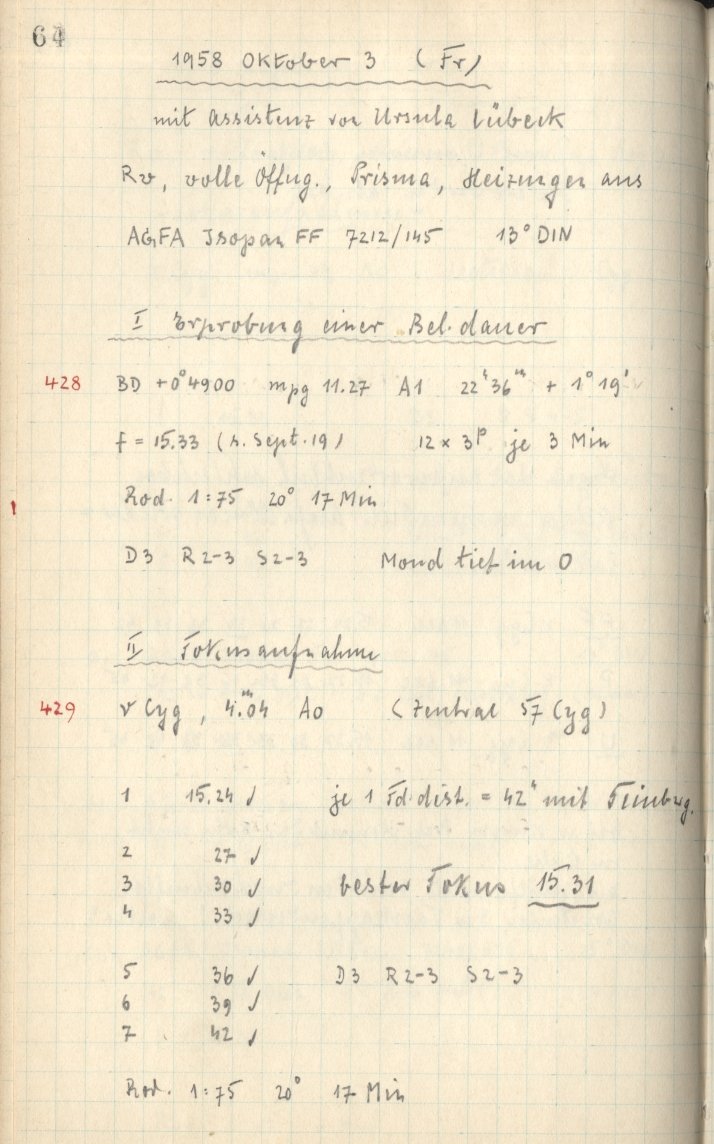 64
1958 Oktober 3 (Fr)
mit Assistenz von Ursula Lübeck
Rv, volle Öffng., Prisma, Heizungen aus
AGFA Isopan FF 7212/145 13° DIN
I Erprobung einer Bel.dauer
428 BD +0°4900 mpg 11.27 A1 22ʰ36ᵐ + 1° 19'
f = 15.33 (s. Sept. 19) 12 × 3ᵖ je 3 Min
Rod. 1:75 20° 17 Min
D3 R2-3 S2-3 Mond tief im O
II Fokusaufnahme
429 ν Cyg, 4ᵐ.04 A0 (Zentral 57 Cyg)
1 15.24 ✓ je 1 Fd.dist. = 42" mit Feinbwg.
2 27 ✓
3 30 ✓ bester Fokus 15.31
4 33 ✓
5 36 ✓ D3 R2-3 S2-3
6 39 ✓
7 42 ✓
Rod. 1:75 20° 17 Min